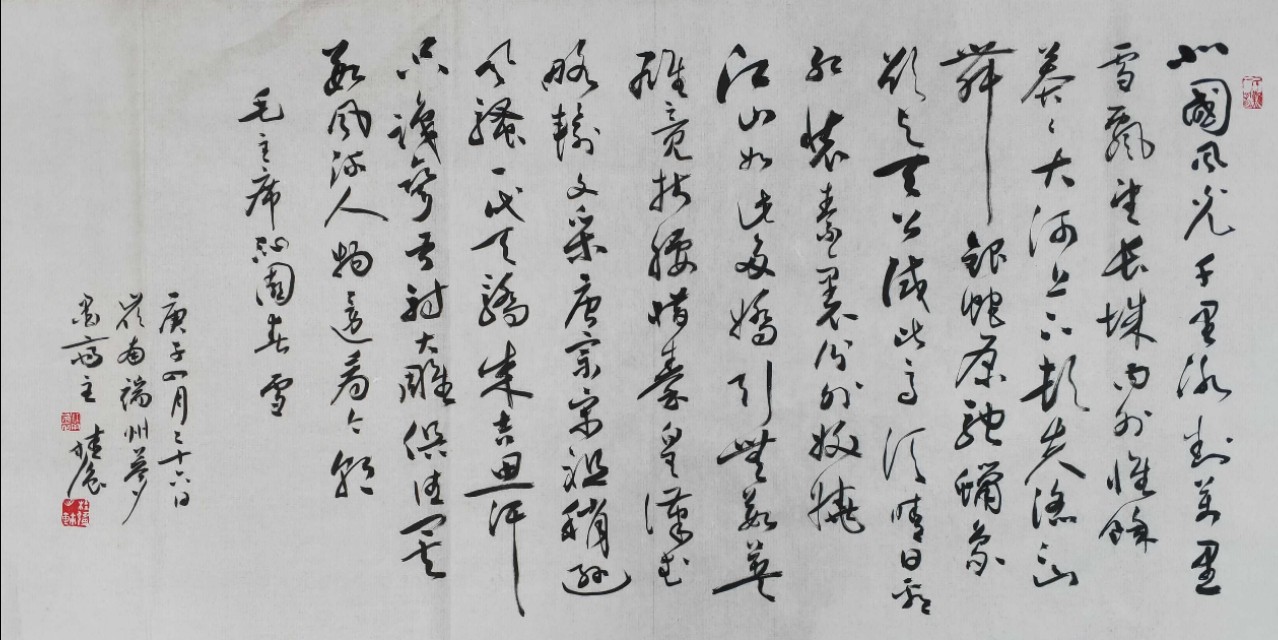 北国风光千里冰封万里
雪飘望长城内外惟馀
莽々大河上下顿失滔滔山
舞银蛇原驰蜡象
欲与天公试比高须晴日看
红装素裹分外妖娆
江山如此多娇引无数英
雄竞折腰惜秦皇汉武
略输文采唐宗宋祖稍逊
风骚一代天骄成吉思汗
只识弯弓射大雕俱往矣
数风流人物还看今朝
毛主席沁园春 雪
庚子四月二十六日
岭南端州梦
墨斋主